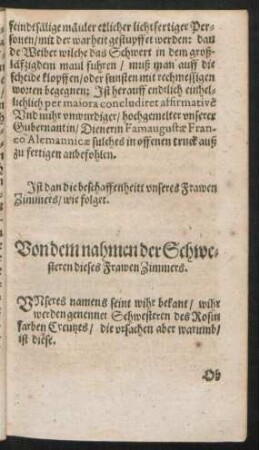 feindtsålige måuler etlicher lichtfertiger Per-
sonen/ mit der warheit gestupffet werden: dan
de Weiber wilche das Schwert in dem groß-
låffzigdem maul fuhren / muß man auff die
scheide klopffen/ oder sunsten mit rechmessigen
worten begegnen: Ist herauff endtlich einhel-
lichlich per maiora concludiret affirmativè
Vnd wihr vnwurdiger / hochgemelter vnserer
Gubernantin/ Dienerin Famaugustæ Fran-
co Alemannicæ sulches in offenen truck auß
zu fertigen anbefohlen.
Ist dan die beschaffenheitt vnseres Frawen
Zimmers/ wie folget.
Von dem nahmen der Schwe-
steren dieses Frawen Zimmers.
VNseres namens seint wihr bekant / wihr
werden genennet Schwesteren des Rosin
farben Creutzes / die vrsachen aber warumb/
ist diese.
Ob